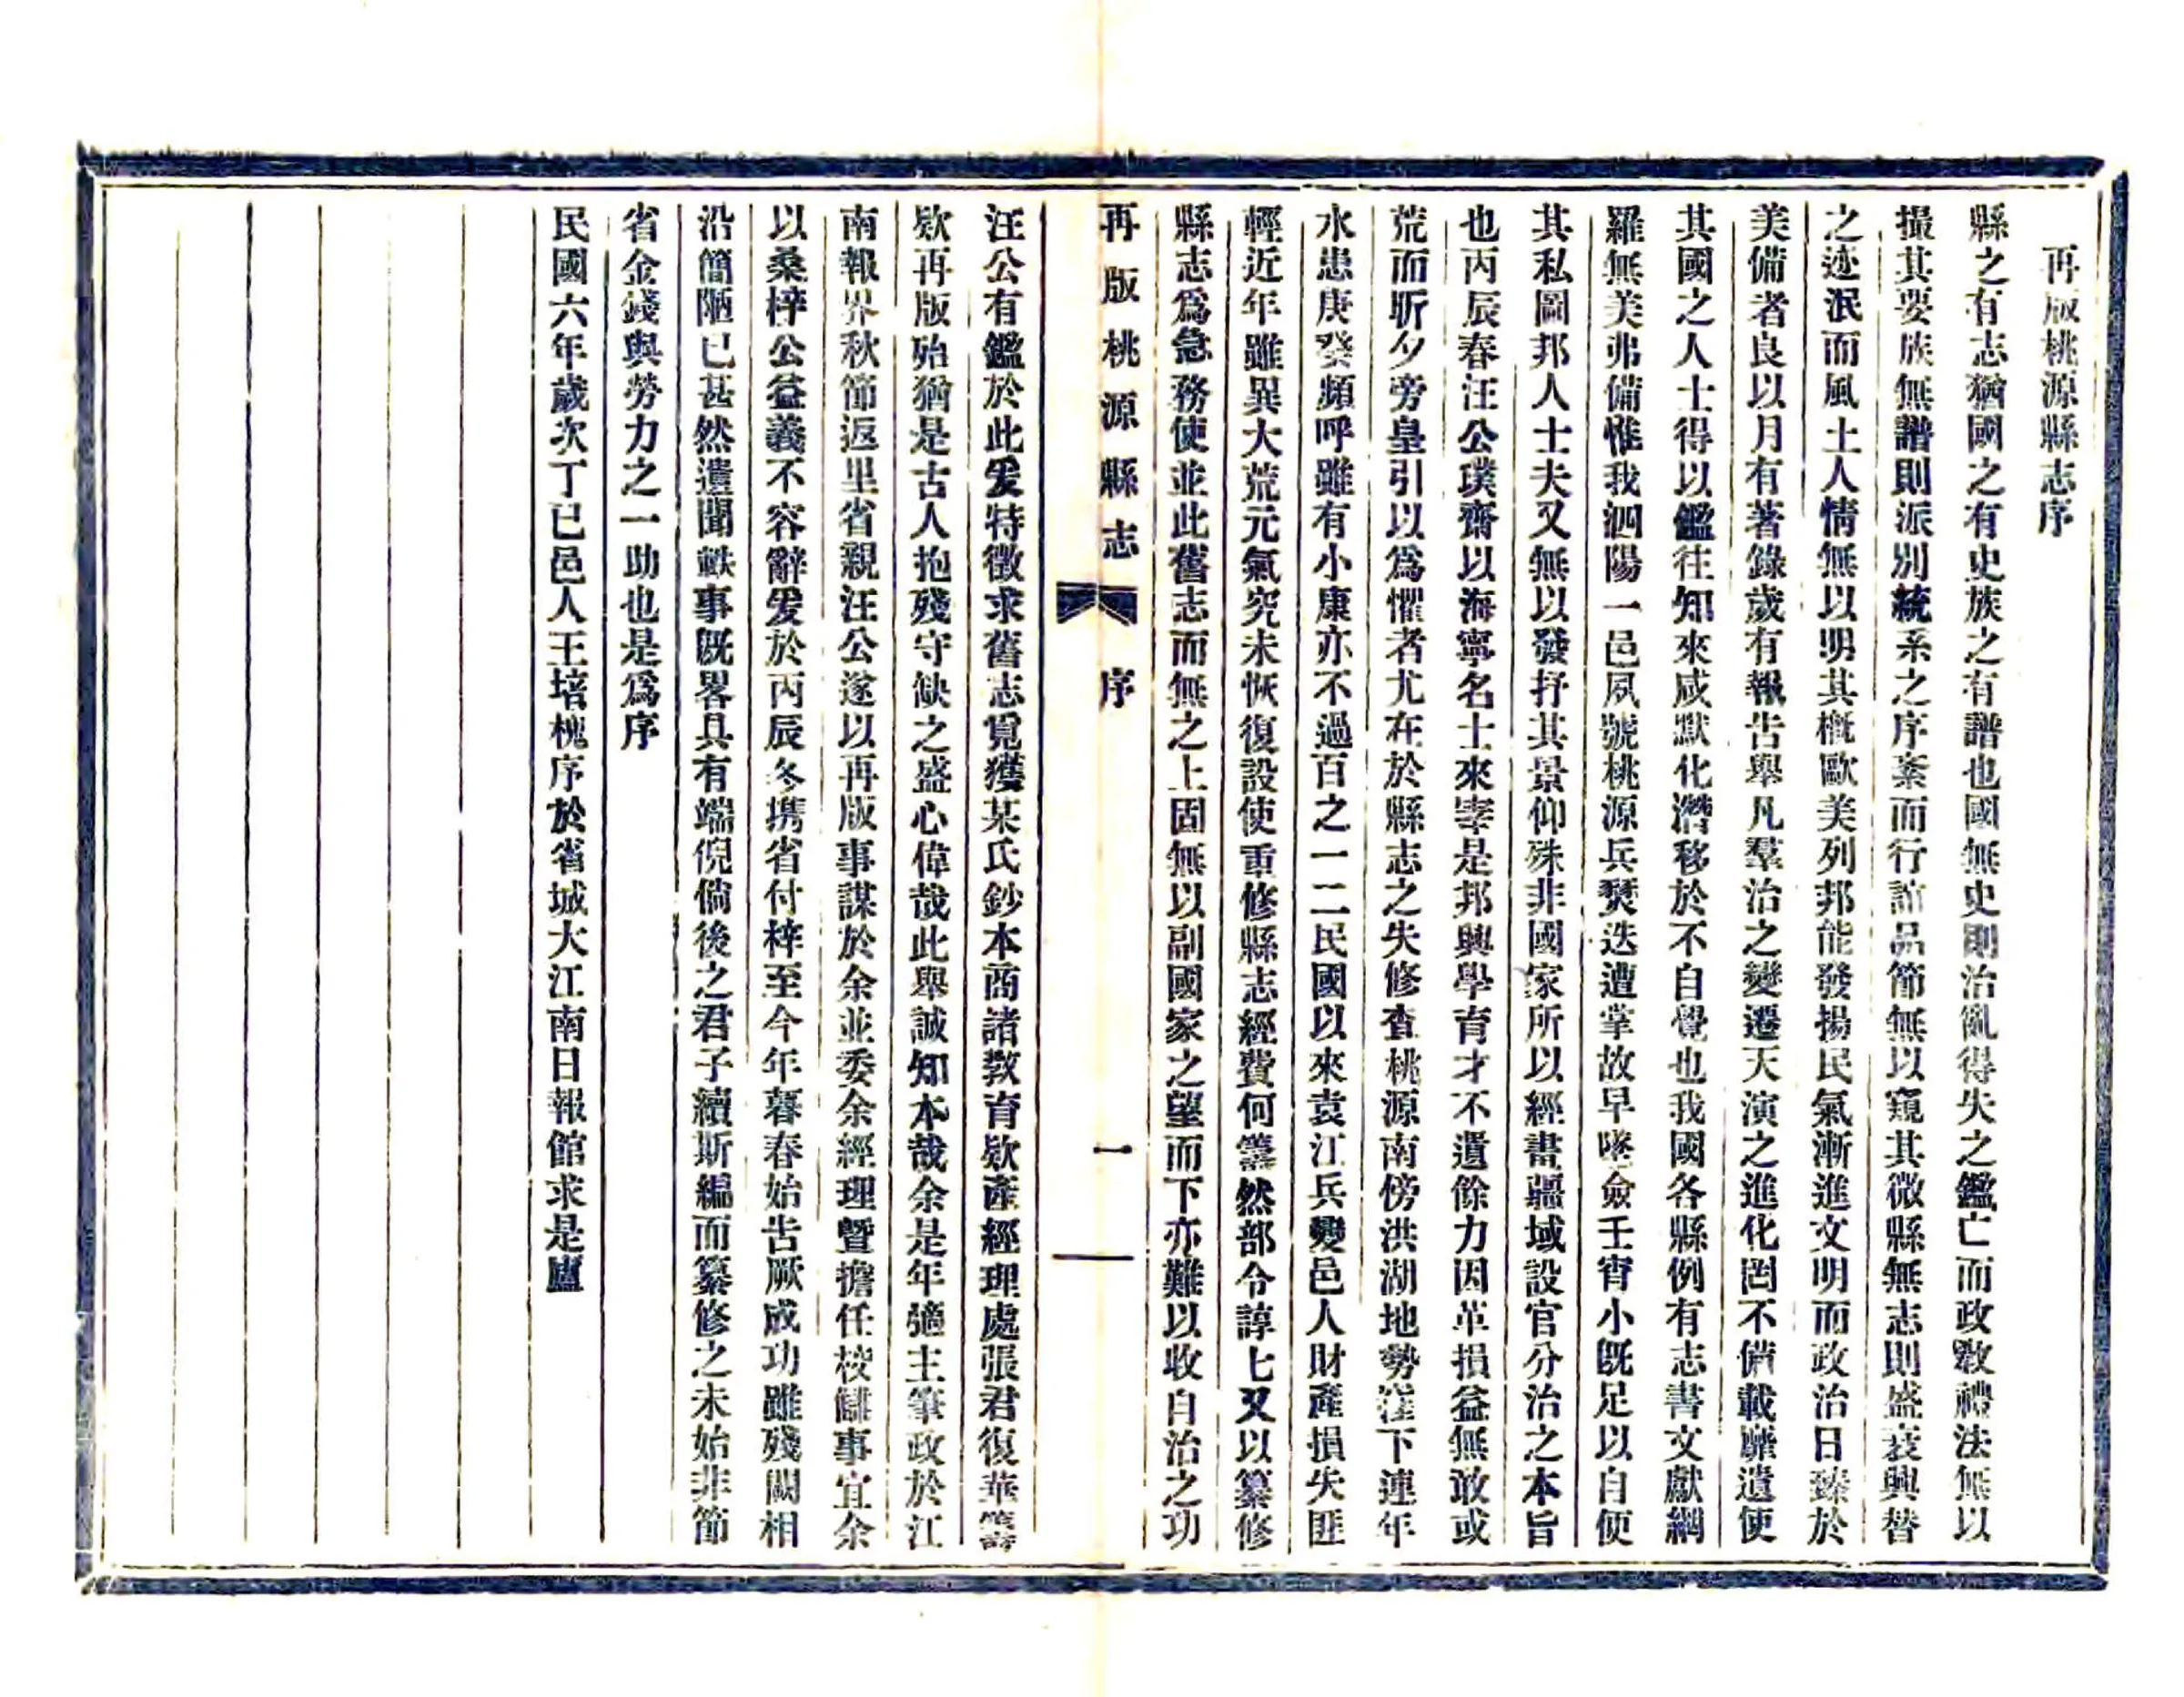 再版桃源縣志序
縣之有志猶國之有史族之有譜也國無史則治亂得失之鑑亡而政教禮法無以
撮其要族無譜則派別統系之序紊而行誼品節無以窺其微縣無志則盛衰興替
之迹泯而風土人情無以明其概歐美列邦能發揚民氣漸進文明而政治日臻於
美備者良以月有著錄歲有報告舉凡羣治之變遷天演之進化罔不備載靡遺使
其國之人士得以鑑往知來咸默化潛移於不自覺也我國各縣例有志書文獻網
羅無美弗備惟我泗陽一邑夙號桃源兵燹迭遭掌故早墜僉壬宵小旣足以自便
其私圖邦人士夫又無以發抒其景仰殊非國家所以經畫疆域設官分治之本旨
也丙辰春汪公璞齋以海寧名士來宰是邦興學育才不遺餘力因革損益無敢或
荒而昕夕旁皇引以爲懼者尤在於縣志之失修查桃源南傍洪湖地勢窪下連年
水患庚癸頻呼雖有小康亦不過百之一二民國以來袁江兵變邑人財產損失匪
輕近年雖異大荒元氣究未恢復設使重修縣志經費何籌然部令諄七又以纂修
縣志爲急務使並此舊志而無之上固無以副國家之望而下亦難以收自治之功
再版桃源縣志 序 一
汪公有鑑於此爰特徵求舊志覓獲某氏鈔本商諸敎育欵產經理處張君復華籌
欵再版殆猶是古人抱殘守缺之盛心偉哉此舉誠知本哉余是年適主筆政於江
南報界秋節返里省親汪公遂以再版事謀於余並委余經理曁擔任校讎事宜余
以桑梓公益義不容辭爰於丙辰冬携省付梓至今年暮春始告厥成功雖殘闕相
沿簡陋已甚然遺聞軼事旣畧具有端倪倘後之君子續斯編而纂修之未始非節
省金錢與勞力之一助也是爲序
民國六年歲次丁巳邑人王培槐序於省城大江南日報館求是廬